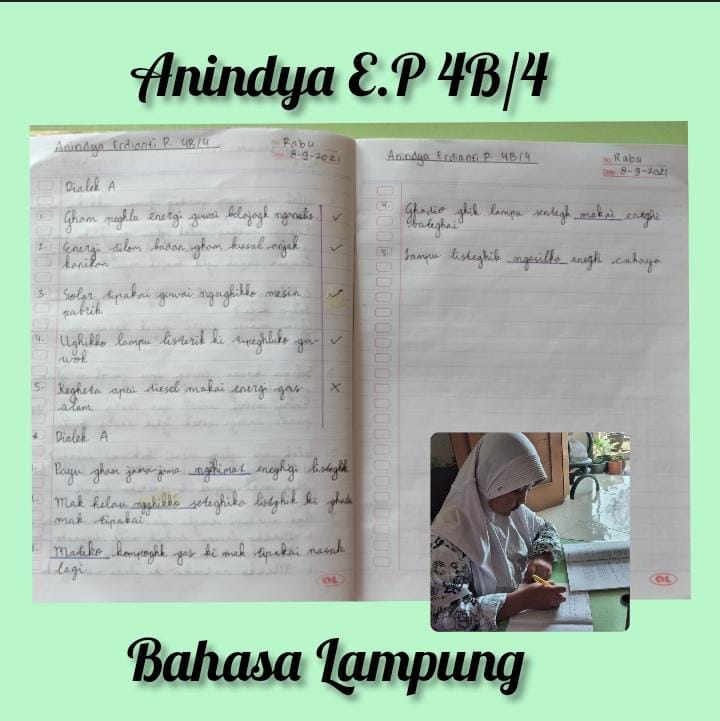 Anindya E.P 4B/4
Anindya Erdianti P. 4B/4
No: Rabu
Date: 8-9-2021
Dialek A
1. Gham peghlu energi guwai belajagh ngonalis ✓
2. Energi dilom badan gham kuasal anjak
kanikan ✓
3. Solar tipakai guwai ngughikko mesin
pabrik ✓
4. Ughikko lampu listerik ki tipeghluko ga-
woh ✓
5. Kegheta apui diesel makai energi gas
alam ✕
* Dialek A
1. Payu gham jama-jama ngihimat eneghgi listeghik
2. Mak helau ngghikko seteghika listghik ki ghadu
mak tipakai
3. Matiko kompogh gas ki mak tipakai nasak
lagi
OL
Anindya Erdianti P. 4B/4
No: Rabu
Date: 8-9-2021
4. Ghadio ghik lampu sentegh makai eneghi
bateghai
5. Lampu listeghik ngasilko eneghi cahaya
OL
Bahasa Lampung